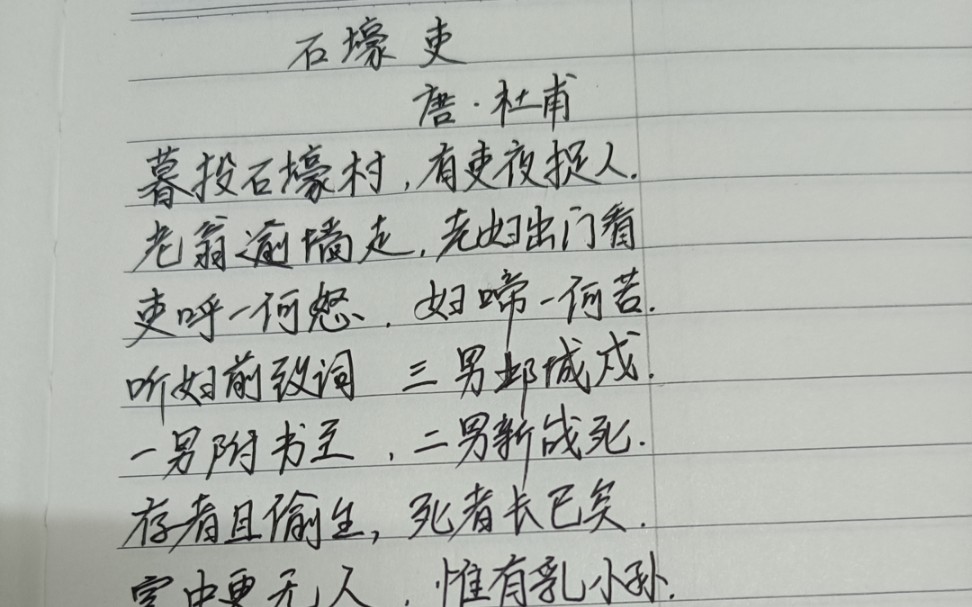 石壕吏
唐·杜甫
暮投石壕村,有吏夜捉人.
老翁逾墙走,老妇出门看
吏呼一何怒,妇啼一何苦.
听妇前致词 三男邺城戍.
一男附书至,二男新战死.
存者且偷生,死者长已矣.
室中更无人,惟有乳小孙.